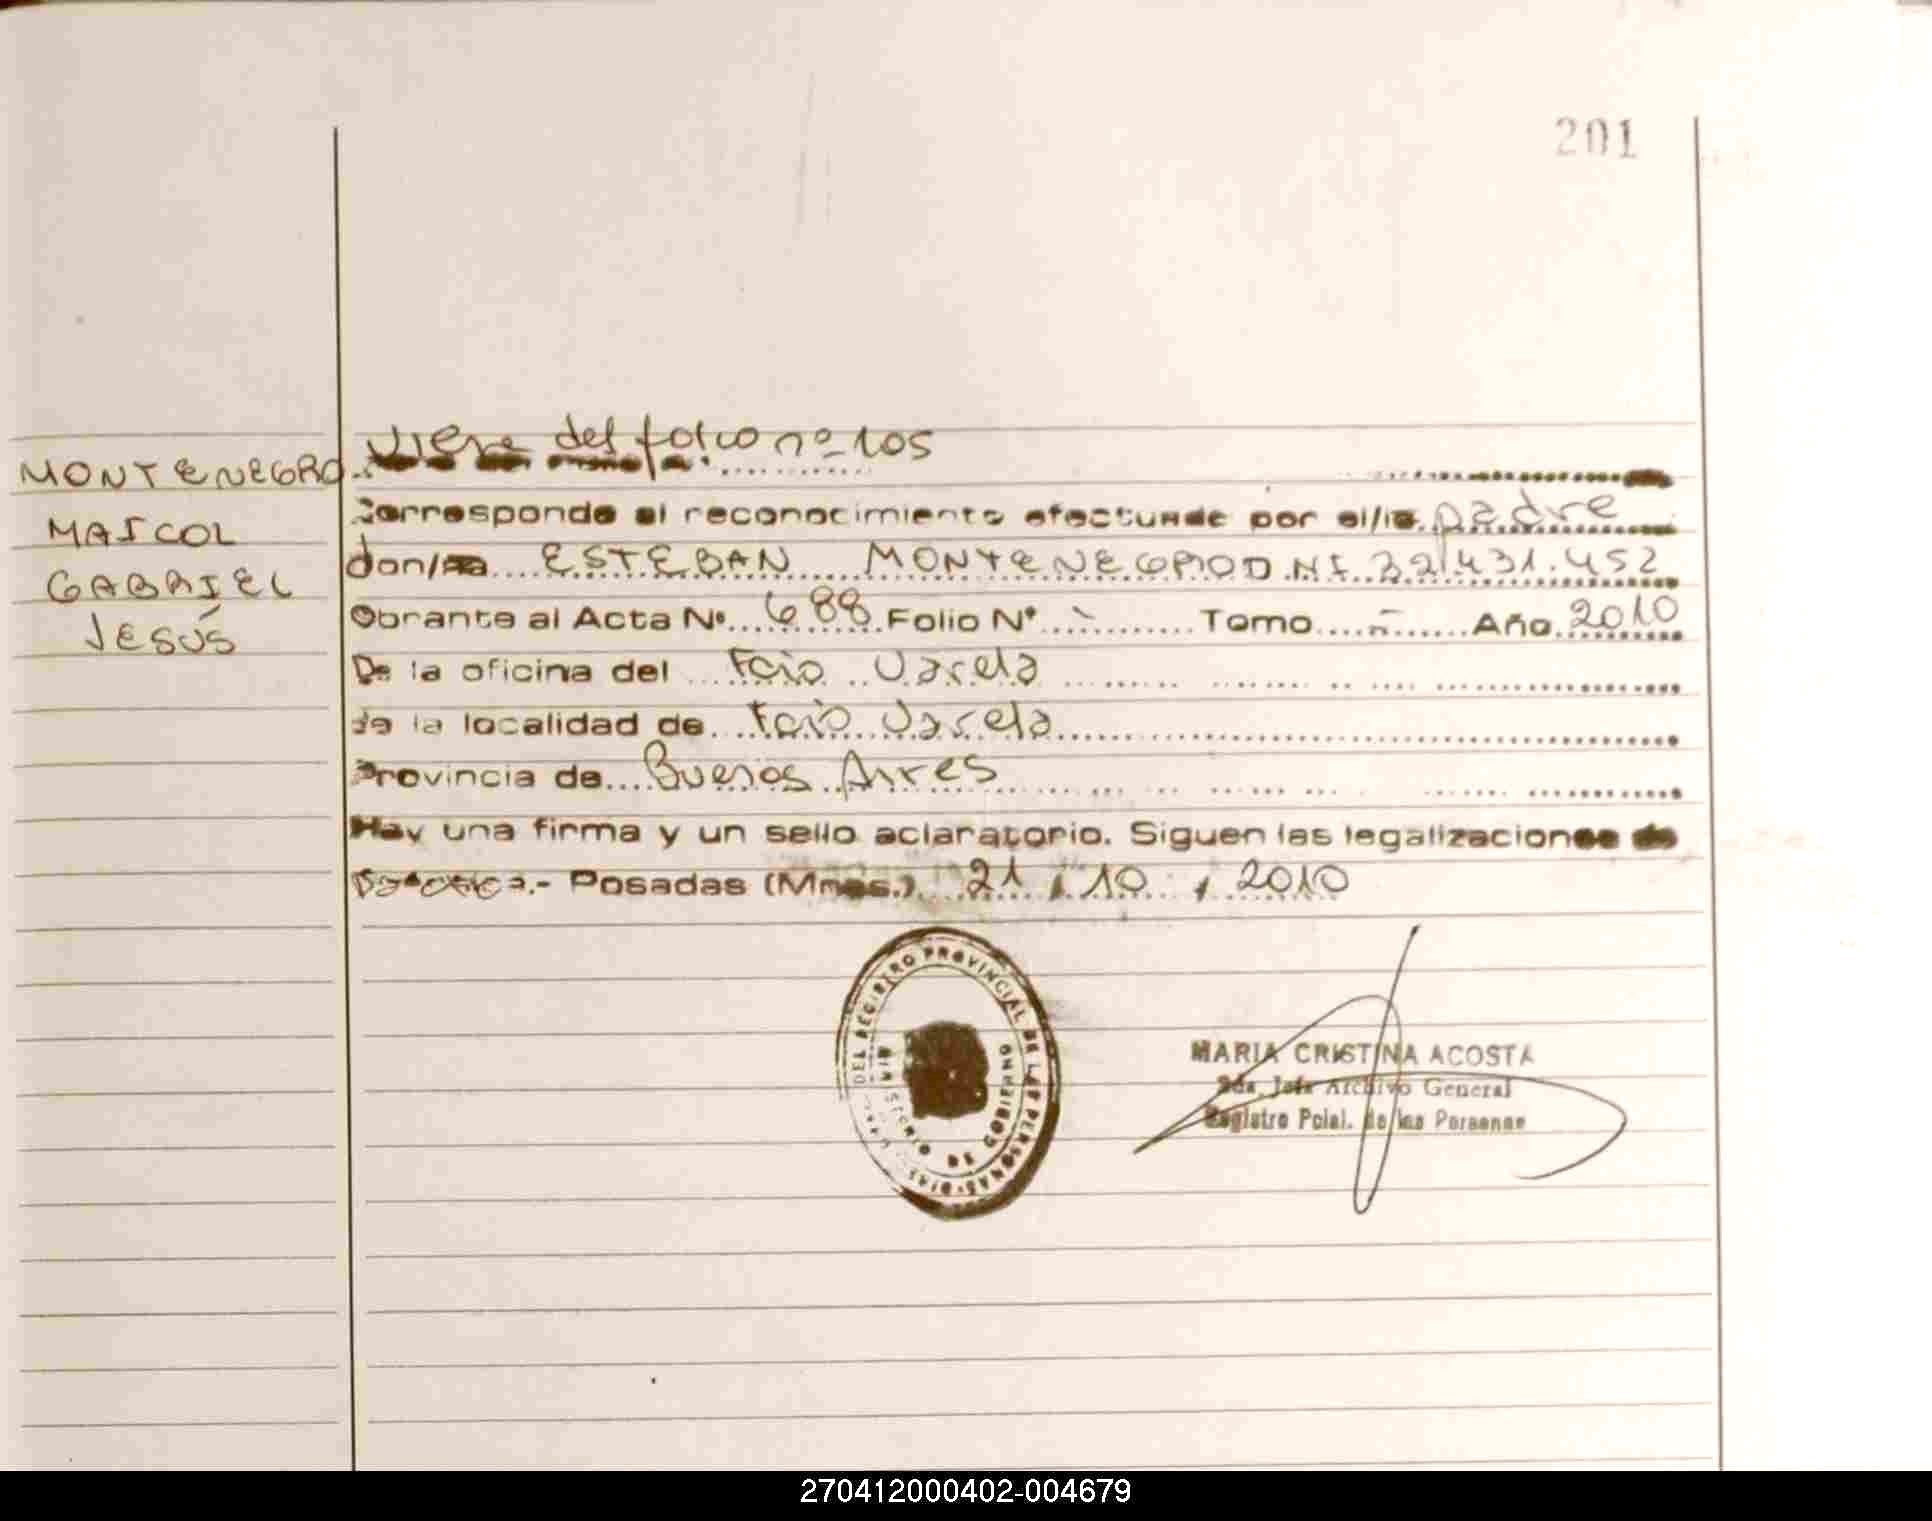 201
Viene del folio nº 105
MONTENEGRO
MAICOL
GABRIEL
JESÚS
Corresponde al reconocimiento efectuado por el/la padre
don/ña ESTEBAN MONTENEGRO D.N.I 32.431.452
Obrante al Acta Nº 688 Folio Nº - Tomo - Año 2010
De la oficina del Fcio Varela
de la localidad de Fcio Varela
Provincia de Buenos Aires
Hay una firma y un sello aclaratorio. Siguen las legalizaciones de
.- Posadas (Mnes.) 21 , 10 , 2010
DEL REGISTRO PROVINCIAL DE LAS PERSONAS
MINISTERIO DE GOBIERNO
MARIA CRISTINA ACOSTA
2da. Jefa Archivo General
Registro Pcial. de las Personas
270412000402-004679